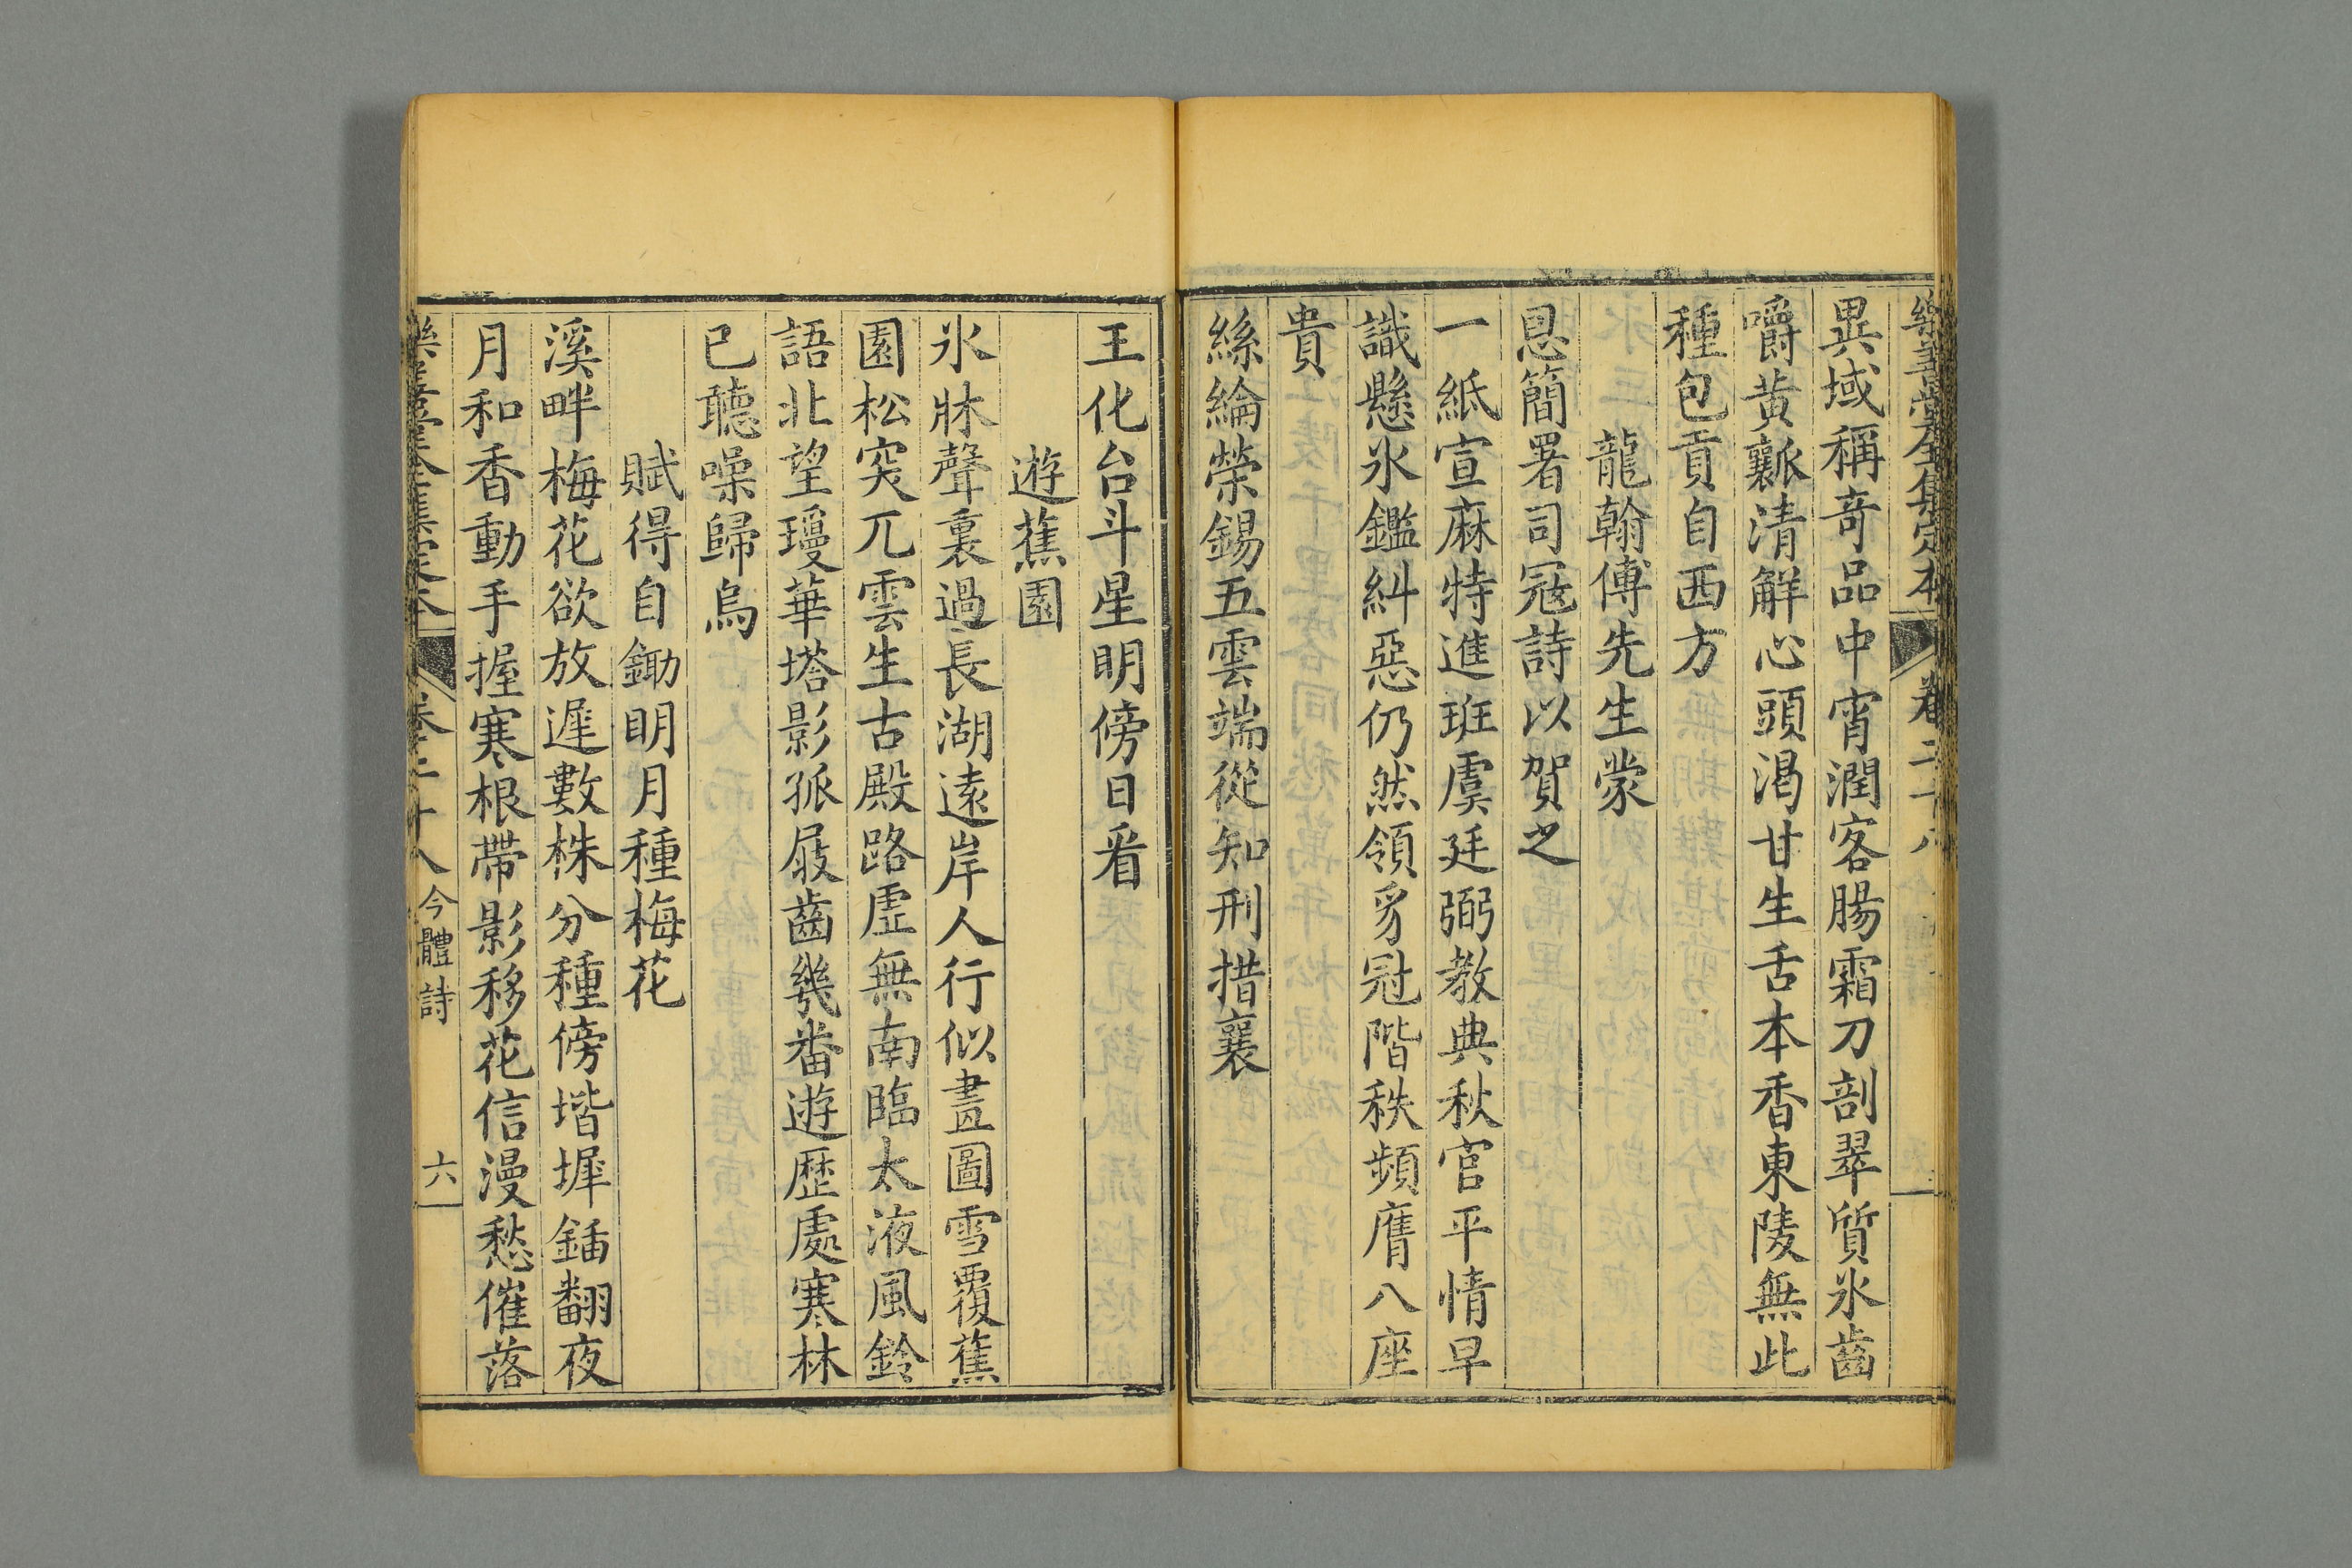 樂善堂全集定本 卷二十八
異域稱奇品中宵潤客腸霜刀剖翠質氷齒
嚼黃瓤清解心頭渴甘生舌本香東陵無此
種包貢自西方
龍翰傅先生蒙
恩簡署司寇詩以賀之
一紙宣麻特進班虞廷弼教典秋官平情早
識懸氷鑑糾惡仍然領豸冠階秩頻膺八座
貴
絲綸榮錫五雲端從知刑措襄
王化台斗星明傍日看
遊蕉園
氷牀聲裏過長湖遠岸人行似畫圖雪覆蕉
園松突兀雲生古殿路虛無南臨太液風鈴
語北望瓊華塔影孤屐齒幾番遊歷處寒林
已聽噪歸烏
賦得自鋤明月種梅花
溪畔梅花欲放遲數株分種傍堦墀鍤翻夜
月和香動手握寒根帶影移花信漫愁催落
樂善堂全集定本 卷二十八 今體詩 六